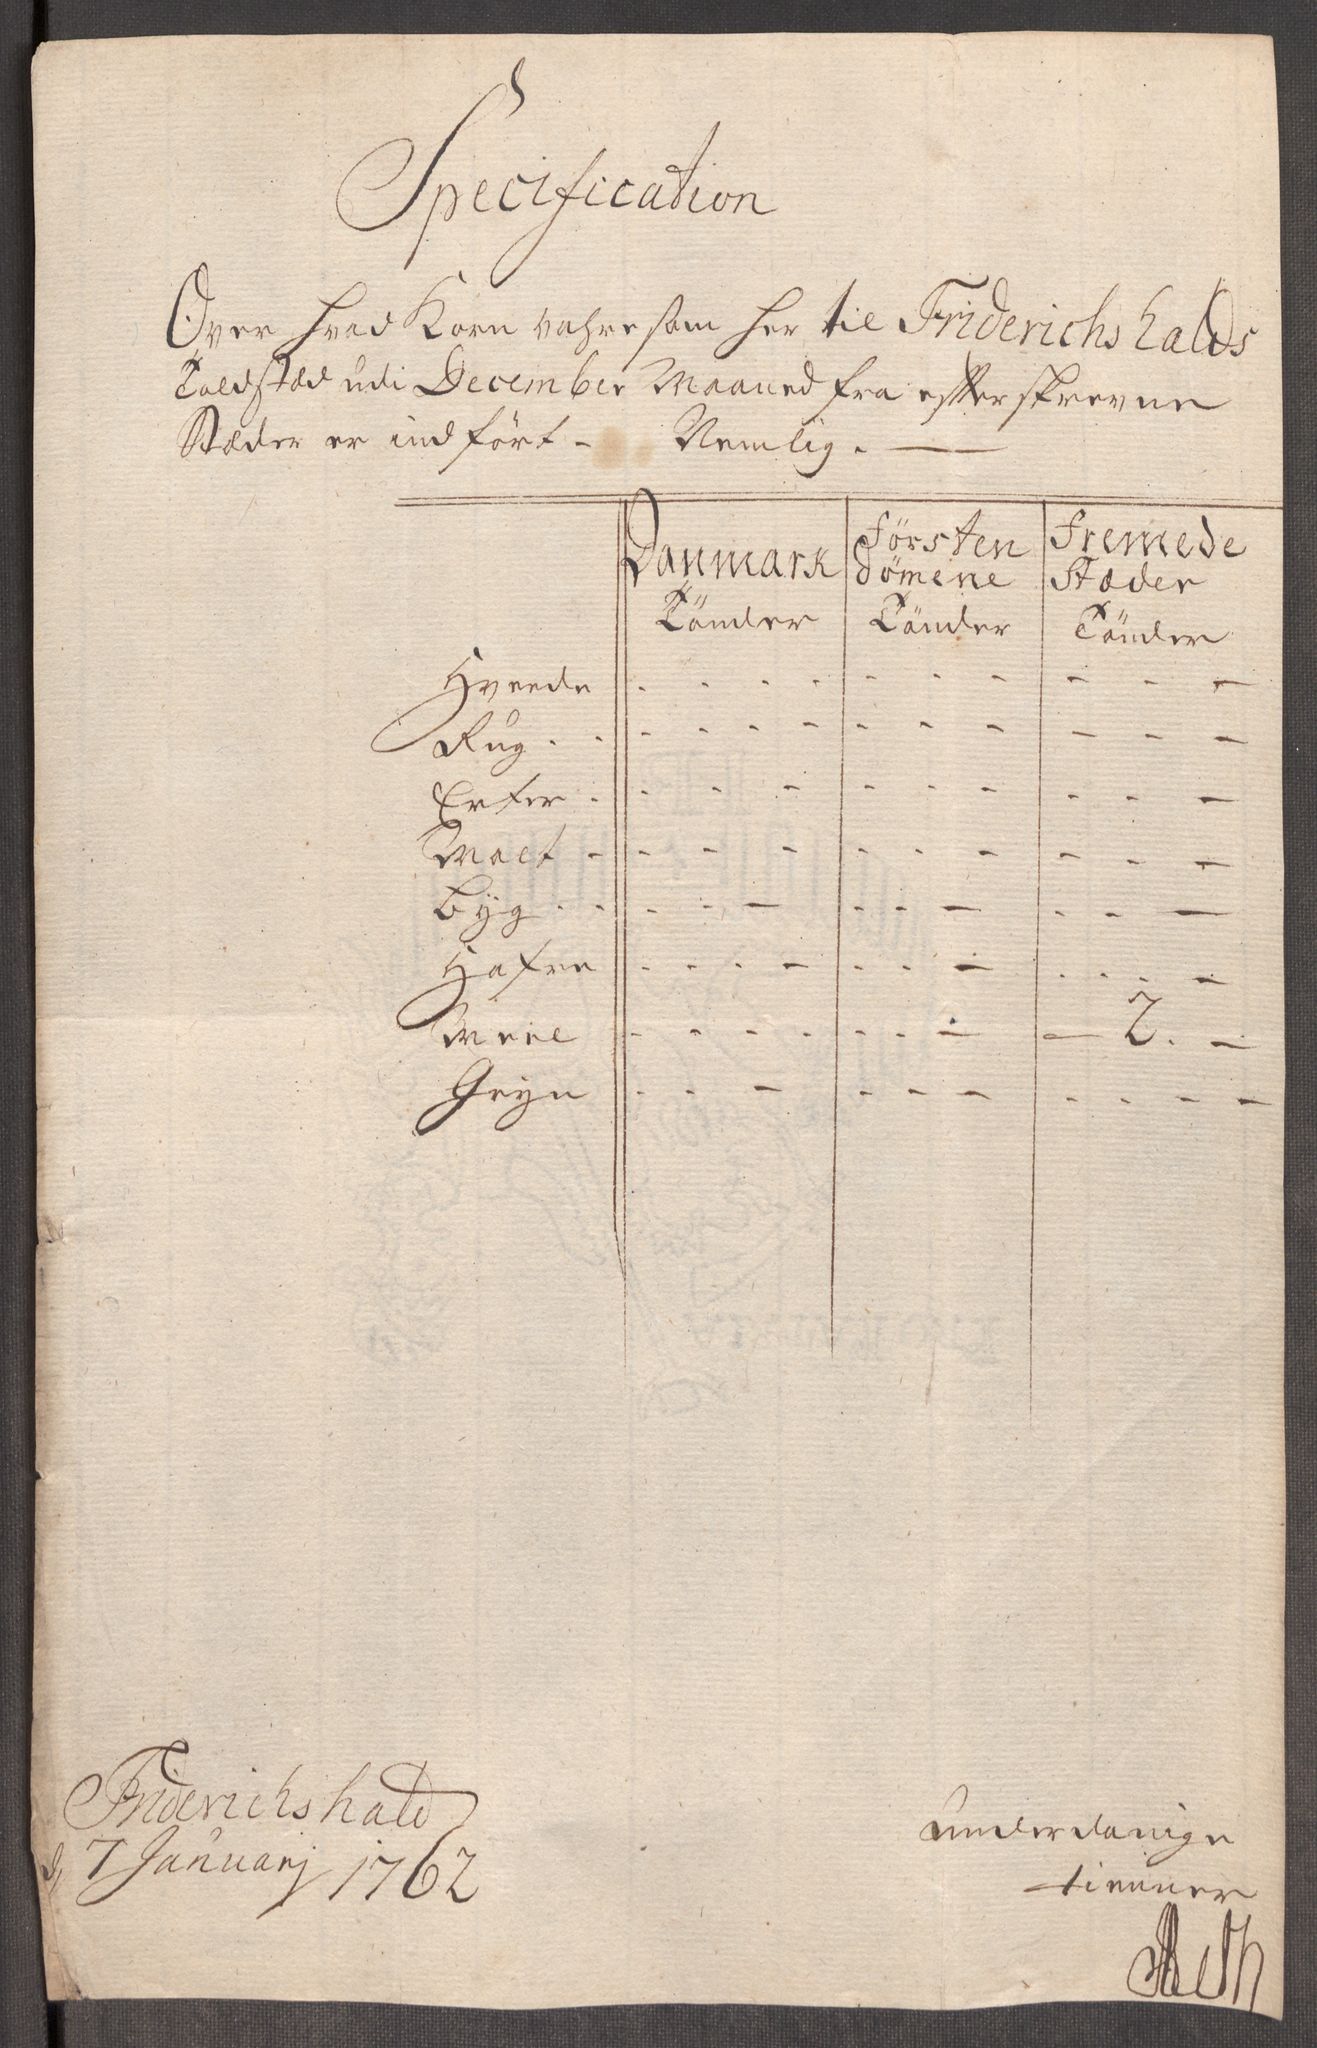 Specification
Over hvad Korn vahre som her til Friderichshalds
Toldstæd udi December Maaned fra efterskrevne
Stæder er indført - Nemlig. —
Danmark Førsten Fremede
dømene Stæder
Tönder Tönder Tönder
Hveede . . . . - - - - - -
Rug . . - - - - - - - - - -
Erter . - - - - - - - - -
Malt - - - - - - - - - -
Byg . . . . - . . - . . -
Hafre . . . - . . - . . . -
Meel - - - . . . - — 2. -
Gryn . . - . . - . . . -
Friderichshald
d 7 Januarj 1762
underdanige
tienner